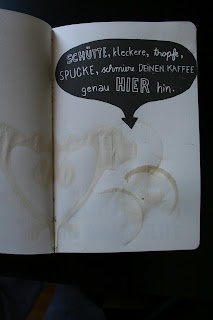 SCHÜTTE, kleckere, tropfe,
SPUCKE, schmiere DEINEN KAFFEE
genau HIER hin.